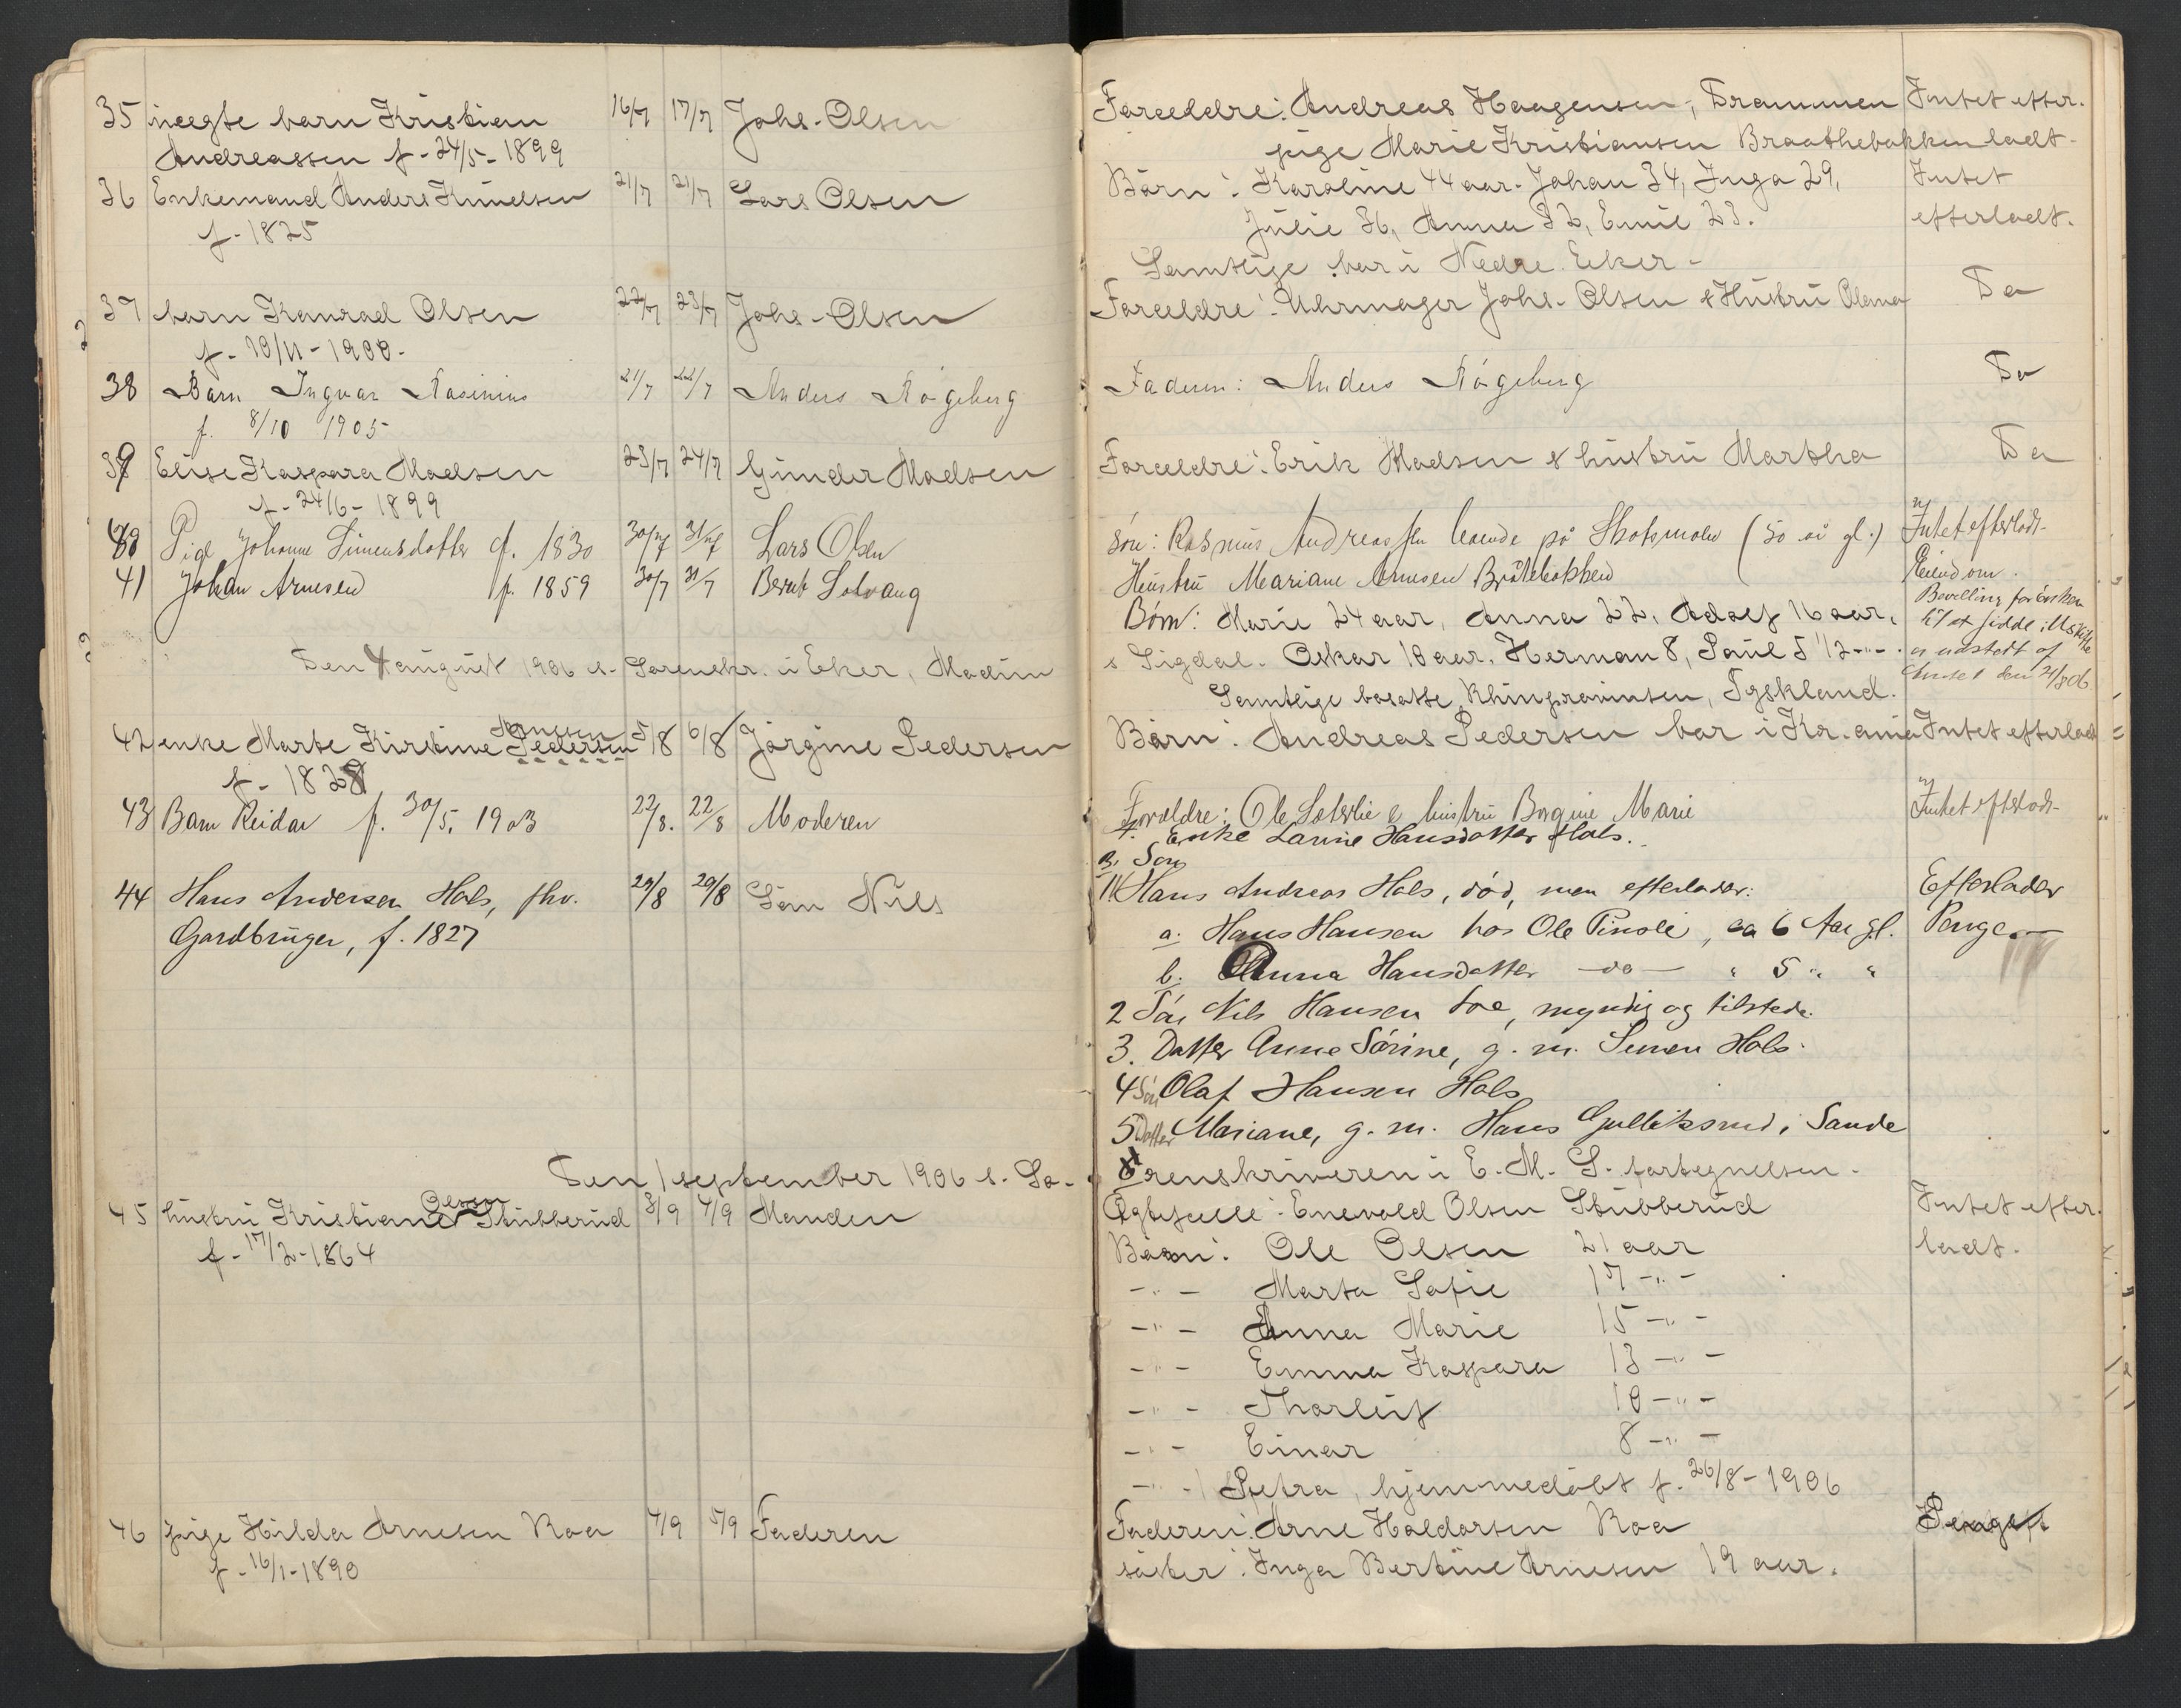 35 uegte barn Kristian 16/7 17/7 Johs. Olsen
Andreassen f. 24/5 - 1899
36 Enkemand Anders Knudsen 21/7 21/7 Lars Olsen
f. 1825
37 barn Konrad Olsen 22/7 23/7 Johs. Olsen
f. 10/11 - 1900.
38 Barn Ingvar Rasinius 21/7 22/7 Anders Rögeberg
f. 8/10 1905
39 Elise Kaspara Madsen 23/7 24/7 Gunder Madsen
f. 24/6 - 1899
40 Pige Johanne Simensdatter f. 1830 30/7 31/7 Lars Olsen
41 Johan Arnesen f. 1859 30/7 31/7 Bernt Solvang
Den 4 august 1906 s. Sorenskr. i Eker, Modum
42 enke Marte Kirstine Pedersen 5/8 6/8 Jørgine Pedersen
f. 1828
43 Barn Reidar f. 30/5. 1903 22/8. 22/8 Moderen
44 Hans Andersen Hals, fhv. 29/8 29/8 Søn Nils
Gardbruger, f. 1827
Den 1 september 1906 s. So-
45 hustru Kristiane Olsen Stubberud 3/9 4/9 Manden
f. 17/2 - 1864
46 pige Hilda Arnesen Roa 4/9 5/9 Faderen
f. 16/1 - 1890
Forældre: Andreas Haagensen, Drammen Intet efter-
pige Marie Kristiansen Braathebakken ladt.
Børn: Karoline 44 aar. Johan 34, Inga 29, Intet
Julie 36, Anna 32, Emil 23. efterladt.
Samtlige bor i Nedre Eker.
Forældre: Uhrmager Johs. Olsen & Hustru Olema Do
Faderen: Anders Rögeberg Do
Forældre: Erik Madsen & hustru Martha Do
Søn: Rasmus Andreassen boende på Skotsmoen (50 år gl.) Intet efterladt
Hustru Mariane Arnesen Bråtebakken Eiendom.
Børn: Marie 24 aar, Anna 22, Adolf 16 aar, Bevilling for Enken
s Sigdal. Oskar 10 aar. Herman 8, Paul 5 1/2 -"- til at sidde i Uskifte
er udstedt af
Samtlige bosatte Rhinprovintsen, Tyskland. Amtet den 21/8 06
Børn: Andreas Pedersen bor i Kr.ania Intet efterladt
Forældre: Ole Sæterlie & hustru Borgine Marie Intet efterladt
A. Enke Larine Hansdatter Hals.
B. Søn
1 Hans Andreas Hals, død, men efterlader: Efterlader
a. Hans Hansen hos Ole Pinsli, ca 6 Aar gl. Penge.
b. Anna Hansdatter -do- " 5 " "
2 Søn Nils Hansen Loe, myndig og tilstede.
3. Datter Anne Sørine, g. m. Simen Hals.
4 Søn Olaf Hansen Hals
5 Datter Mariane, g. m. Hans Gulliksrud i Sande
renskriveren i E. M. S. fortegnelsen.
Ægtefælle: Enevold Olsen Stubberud Intet efter-
Børn: Ole Olsen 21 aar ladt.
-"- Marta Sofie 17 -"-
-"- Anna Marie 15 -"-
-"- Emma Kaspara 13 -"-
-"- Thorleif 10 -"-
-"- Einar 8 -"-
-"- Petra, hjemmedøbt f. 26/8 - 1906
Faderen: Arne Haldorsen Roa Penge
søster: Inga Bertine Arnesen 19 aar.